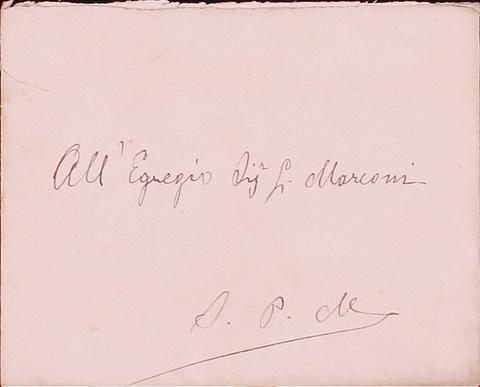 All' Egregio Sigr G. Marconi
S. P. M